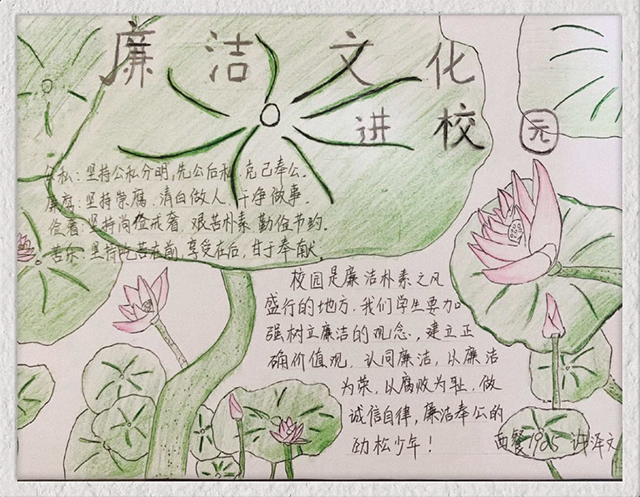 廉洁文化
进校园
公私:坚持公私分明,先公后私,克己奉公。
廉腐:坚持崇腐,清白做人,干净做事。
俭奢:坚持尚俭戒奢,艰苦朴素,勤俭节约。
苦乐:坚持吃苦在前,享受在后,甘于奉献。
校园是廉洁朴素之风
盛行的地方,我们学生要加
强树立廉洁的观念,建立正
确价值观,认同廉洁,以廉洁
为荣,以腐败为耻,做
诚信自律,廉洁奉公的
劲松少年!
西餐